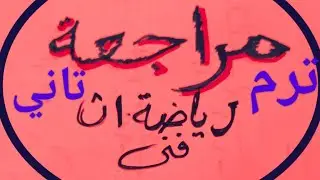 مراجعة
ترم تاني
رياضة ١ث
فنى